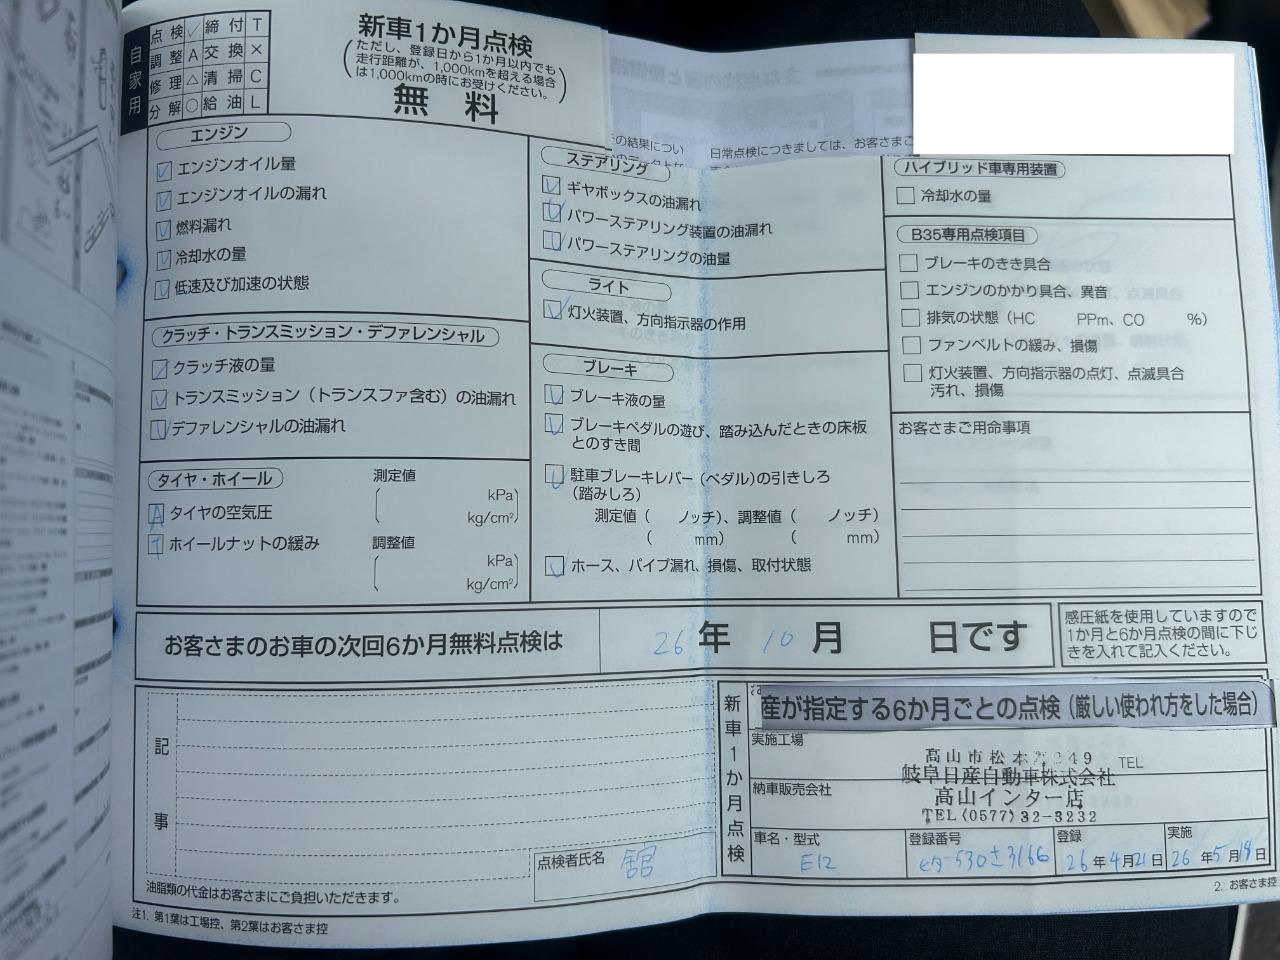 自家用
点検 ✓ 締付 T
調整 A 交換 ×
修理 △ 清掃 C
分解 ○ 給油 L
新車1か月点検
(ただし、登録日から1か月以内でも
走行距離が、1,000kmを超える場合
は1,000kmの時にお受けください。)
無料
の結果につい
日常点検につきましては、お客さまご
エンジン
エンジンオイル量
エンジンオイルの漏れ
燃料漏れ
冷却水の量
低速及び加速の状態
クラッチ・トランスミッション・デファレンシャル
クラッチ液の量
トランスミッション(トランスファ含む)の油漏れ
デファレンシャルの油漏れ
タイヤ・ホイール
測定値
( kPa
kg/cm²)
A タイヤの空気圧
T ホイールナットの緩み
調整値
( kPa
kg/cm²)
ステアリング
ギヤボックスの油漏れ
パワーステアリング装置の油漏れ
パワーステアリングの油量
ライト
灯火装置、方向指示器の作用
ブレーキ
ブレーキ液の量
ブレーキペダルの遊び、踏み込んだときの床板
とのすき間
駐車ブレーキレバー(ペダル)の引きしろ
(踏みしろ)
測定値( ノッチ)、調整値( ノッチ)
( mm) ( mm)
ホース、パイプ漏れ、損傷、取付状態
ハイブリッド車専用装置
冷却水の量
B35専用点検項目
ブレーキのきき具合
エンジンのかかり具合、異音
排気の状態(HC PPm、CO %)
ファンベルトの緩み、損傷
灯火装置、方向指示器の点灯、点滅具合
汚れ、損傷
お客さまご用命事項
お客さまのお車の次回6か月無料点検は 26年 10月 日です
感圧紙を使用していますので
1か月と6か月点検の間に下じ
きを入れて記入ください。
記事
点検者氏名 舘
油脂類の代金はお客さまにご負担いただきます。
新車1か月点検
産が指定する6か月ごとの点検(厳しい使われ方をした場合)
実施工場
高山市松本町249
TEL
岐阜日産自動車株式会社
納車販売会社
高山インター店
TEL(0577)32-3232
車名・型式
E12
登録番号
登録
26年4月21日
実施
26年5月18日
2. お客さま控
注1. 第1葉は工場控、第2葉はお客さま控